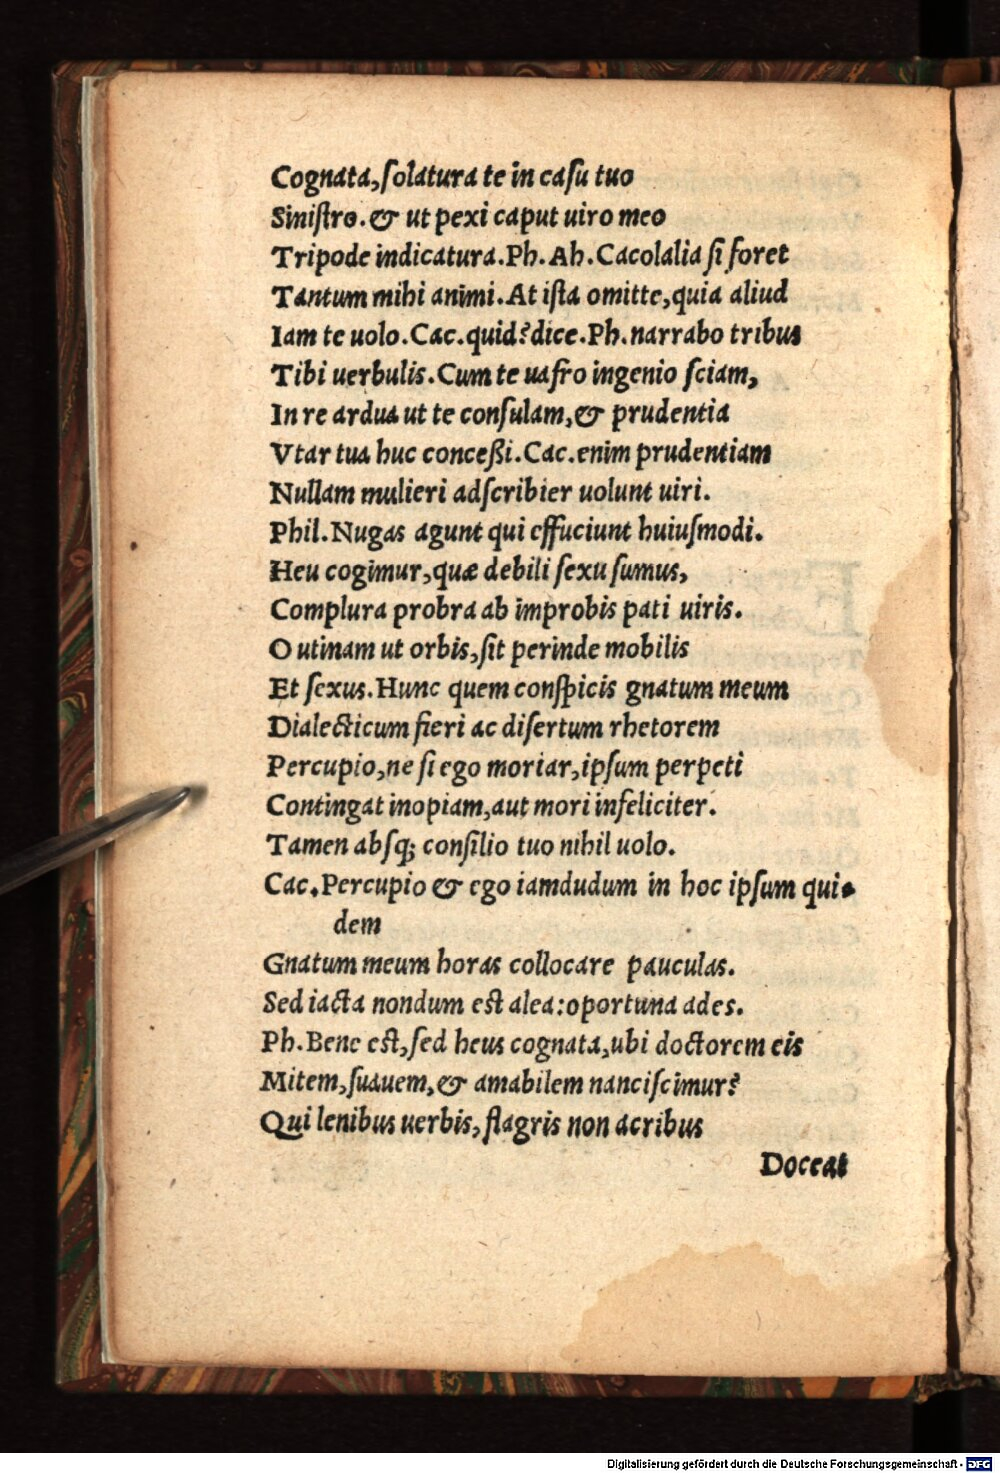 Cognata,ſolatura te in caſu tuo
Siniſtro.& ut pexi caput uiro meo
Tripode indicatura.Ph.Ah.Cacolalia ſi foret
Tantum mihi animi.At iſta omitte,quia aliud
Iam te uolo.Cac.quid?dice.Ph.narrabo tribus
Tibi uerbulis.Cum te uafro ingenio ſciam,
In re ardua ut te conſulam,& prudentia
Vtar tua huc conceßi.Cac.enim prudentiam
Nullam mulieri adſcribier uolunt uiri.
Phil.Nugas agunt qui effuciunt huiuſmodi.
Heu cogimur,quæ debili ſexu ſumus,
Complura probra ab improbis pati uiris.
O utinam ut orbis,ſit perinde mobilis
Et ſexus.Hunc quem conſpicis gnatum meum
Dialecticum fieri ac diſertum rhetorem
Percupio,ne ſi ego moriar,ipſum perpeti
Contingat inopiam,aut mori infeliciter.
Tamen abſq; conſilio tuo nihil uolo.
Cac.Percupio & ego iamdudum in hoc ipſum qui-
dem
Gnatum meum horas collocare pauculas.
Sed iacta nondum est alea:oportuna ades.
Ph.Bene eſt,ſed heus cognata,ubi doctorem eis
Mitem,ſuauem,& amabilem nanciſcimur?
Qui lenibus uerbis,flagris non acribus
Doceat
Digitalisierung gefördert durch die Deutsche Forschungsgemeinschaft - DFG